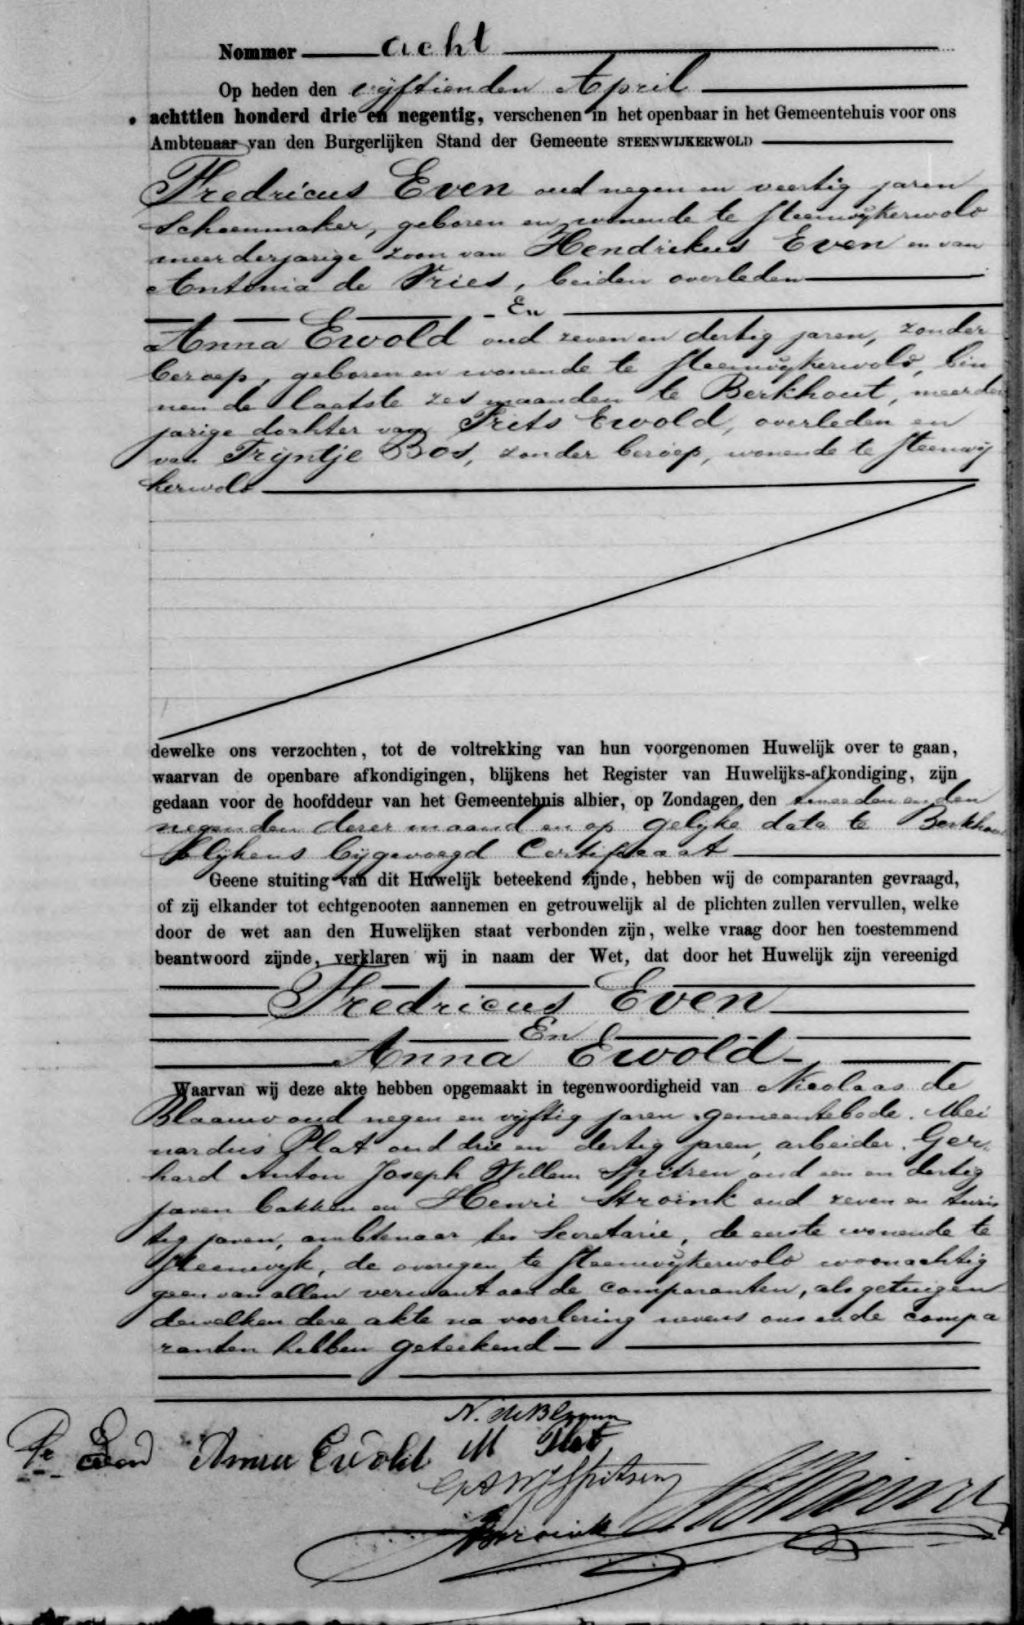 Nommer acht
Op heden den vijftienden April
achttien honderd drie en negentig, verschenen in het openbaar in het Gemeentehuis voor ons
Ambtenaar van den Burgerlijken Stand der Gemeente STEENWIJKERWOLD
Fredricus Even oud negen en veertig jaren
Schoenmaker, geboren en wonende te Steenwijkerwold
meerderjarige zoon van Hendrikus Even en van
Antonia de Vries, beiden overleden
En
Anna Ewold oud zeven en dertig jaren, zonder
beroep, geboren en wonende te Steenwijkerwold, bin
nen de laatste zes maanden te Berkhout, meerder
jarige dochter van Frits Ewold, overleden en
van Trijntje Bos, zonder beroep, wonende te Steenwij
kerwold
dewelke ons verzochten, tot de voltrekking van hun voorgenomen Huwelijk over te gaan,
waarvan de openbare afkondigingen, blijkens het Register van Huwelijks-afkondiging, zijn
gedaan voor de hoofddeur van het Gemeentehuis alhier, op Zondagen, den tweeden en den
negenden dezer maand en op gelijke data te Berkhout
blijkens bijgevoegd Certificaat
Geene stuiting van dit Huwelijk beteekend zijnde, hebben wij de comparanten gevraagd,
of zij elkander tot echtgenooten aannemen en getrouwelijk al de plichten zullen vervullen, welke
door de wet aan den Huwelijken staat verbonden zijn, welke vraag door hen toestemmend
beantwoord zijnde, verklaren wij in naam der Wet, dat door het Huwelijk zijn vereenigd
Fredricus Even
En
Anna Ewold
Waarvan wij deze akte hebben opgemaakt in tegenwoordigheid van Nicolaas de
Blaauw oud negen en vijftig jaren gemeentebode. Mei
nardus Plat oud drie en dertig jaren, arbeider. Ger-
hard Anton Joseph Willem Spitzen oud een en dertig
jaren bakker en Henri Stroink oud zeven en twin
tig jaren, ambtenaar ter Secretarie, de eerste wonende te
Steenwijk, de overigen te Steenwijkerwold woonachtig
geen van allen verwant aan de comparanten, als getuigen
dewelken deze akte na voorlezing nevens ons en de compa
ranten hebben geteekend
N. de Blaauw
Fr Even Anna Ewold M Plat
G A W J Spitzen
HStroink